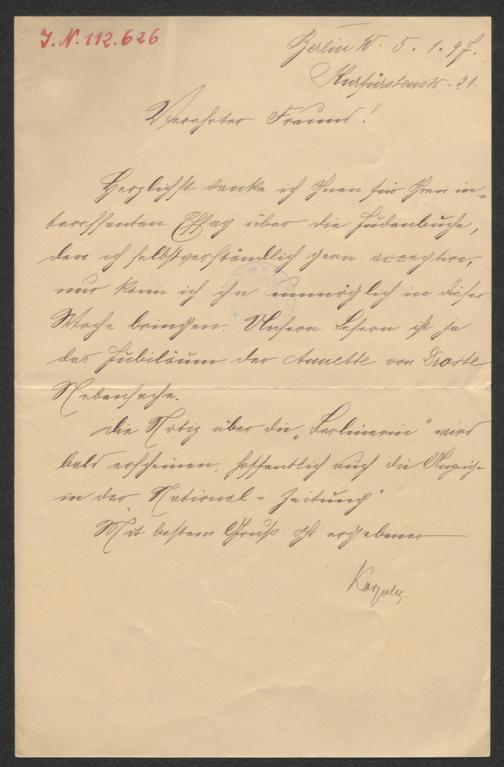 J. N. 112.626
Berlin W. 5. 1. 97.
Kurfürstenstr. 21.
Verehrter Freund!
Herzlichst danke ich Ihnen für Ihren in-
teressanten Essay über die Judenbuche,
den ich selbstverständlich gern acceptire,
nur kann ich ihn unmöglich in dieser
Woche bringen. Unsern Lesern ist ja
das Jubiläum der Annette von Droste
Nebensache.
Die Notiz über die „Berlinerin" wird
bald erscheinen, hoffentlich auch die
in der „National-Zeitung".
Mit bestem Gruß Ihr ergebener
Karpeles.